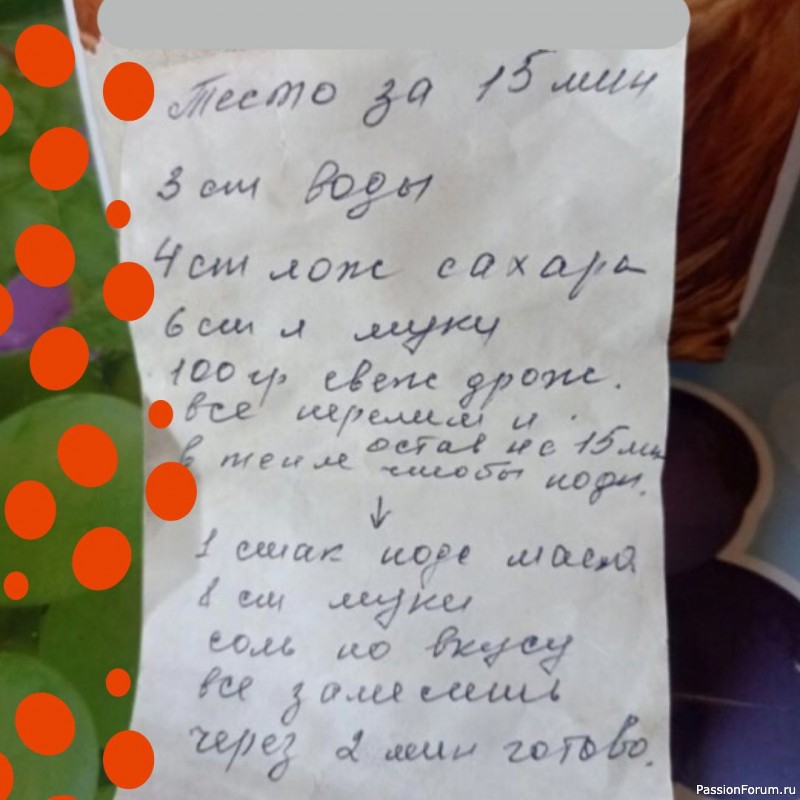 Тесто за 15 мин
3 ст воды
4 ст лож сахара
6 ст л муки
100 гр свеж дрож.
все перелим и
в тепле остав на 15 мин
чтобы подн.
↓
1 стак подс масла
8 ст муки
соль по вкусу
все замесить
через 2 мин готово.
PassionForum.ru